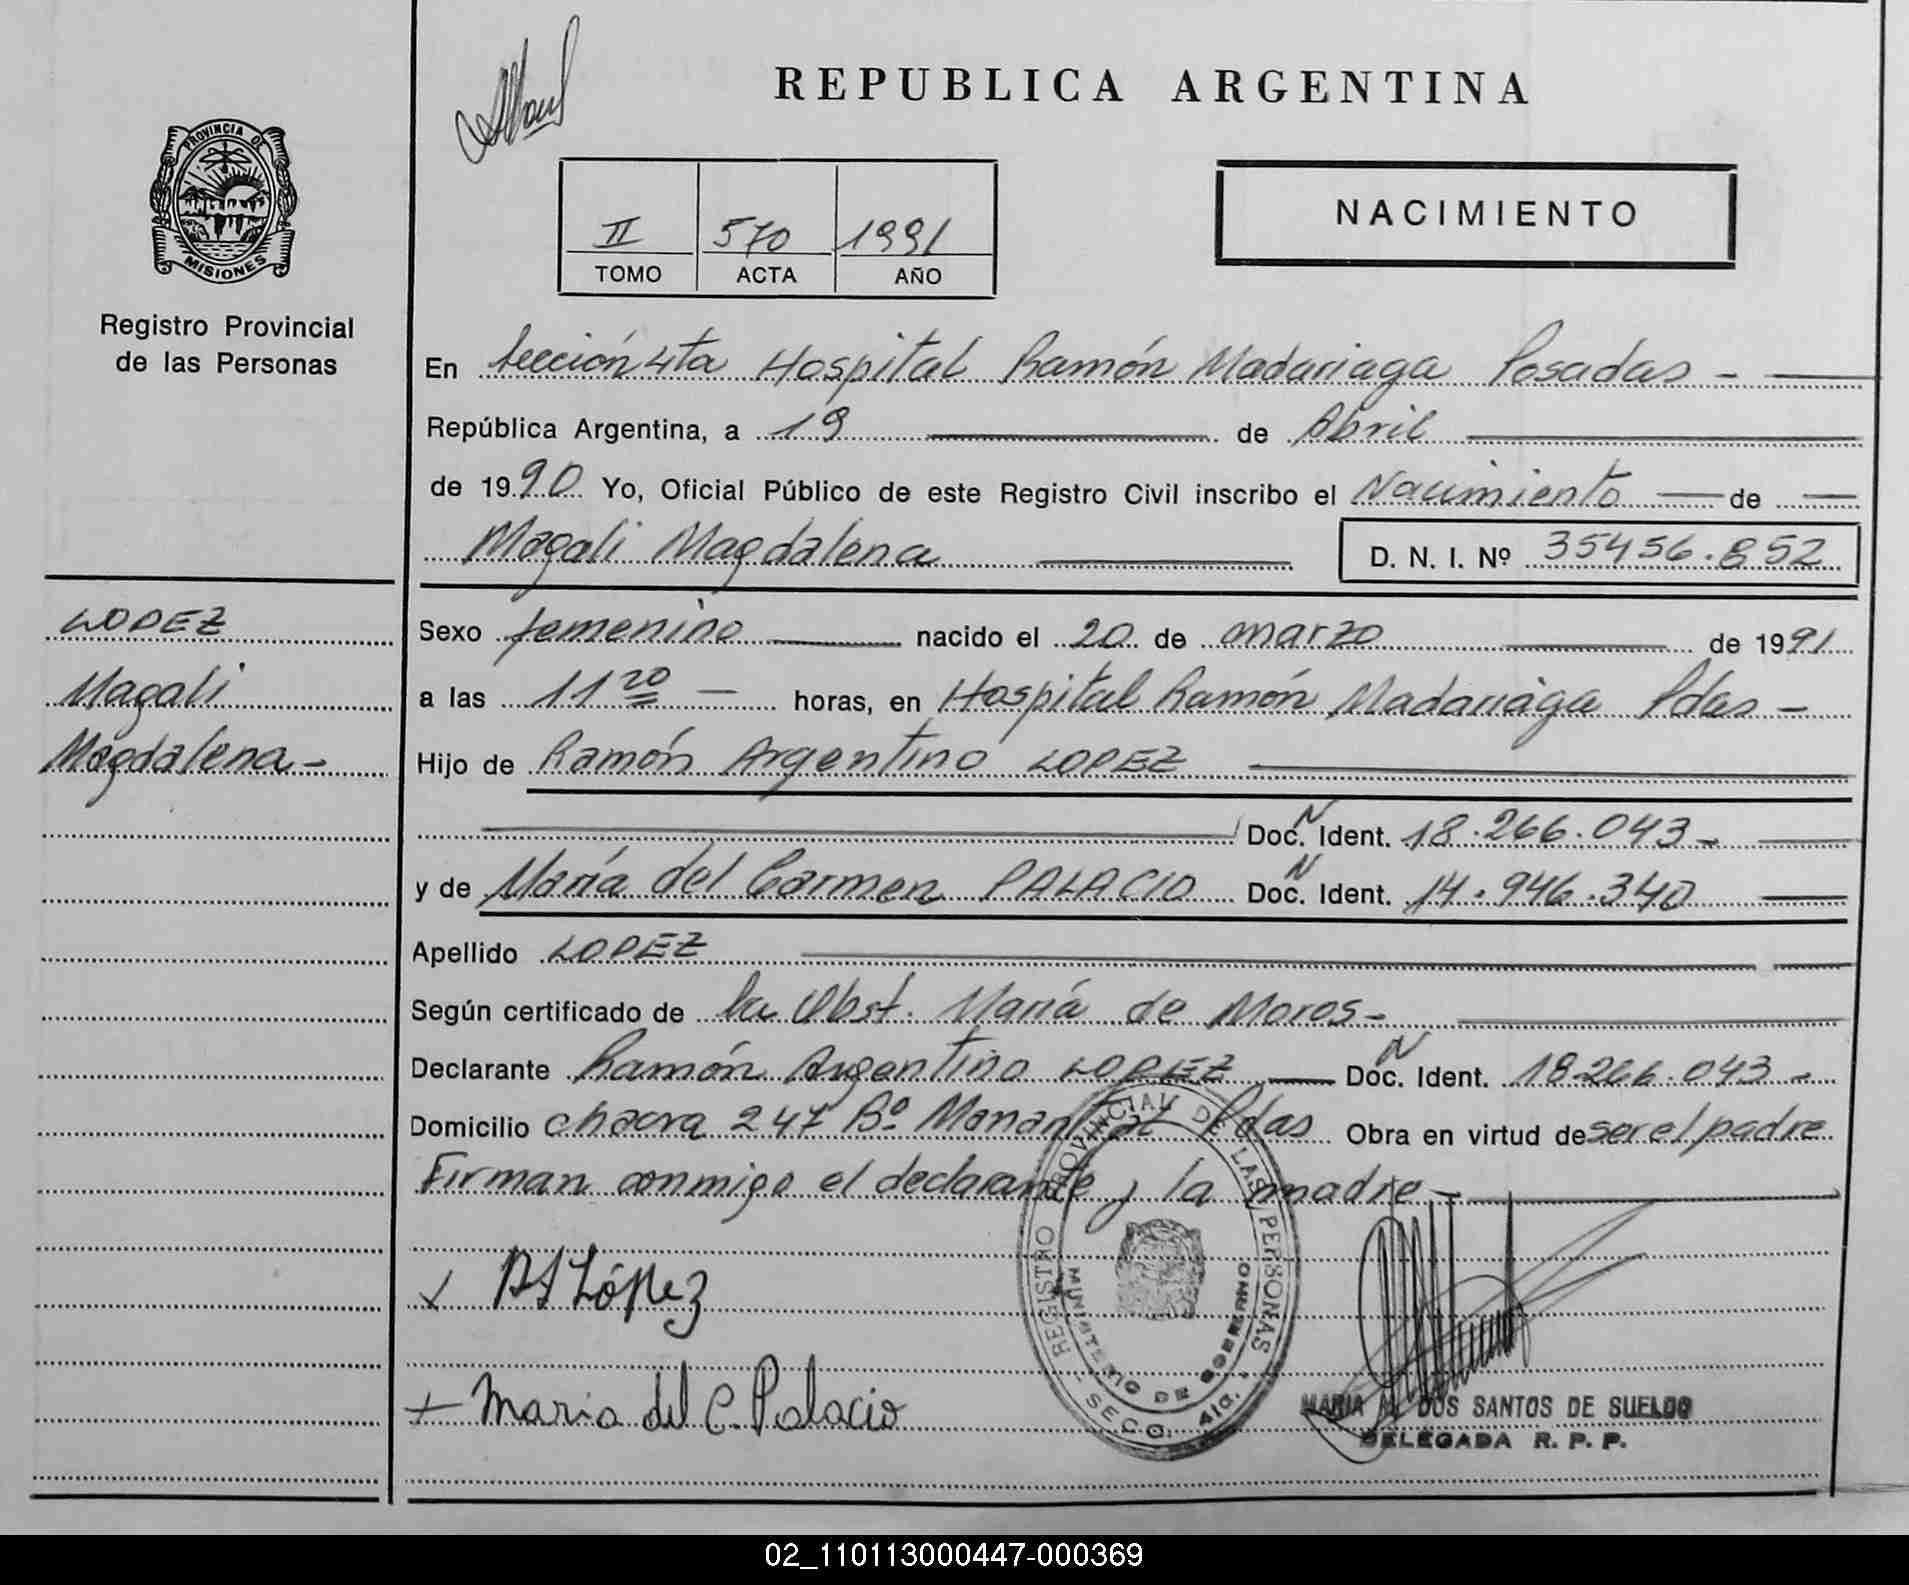 REPUBLICA ARGENTINA
PROVINCIA DE
MISIONES
Registro Provincial
de las Personas
II 570 1991
TOMO ACTA AÑO
NACIMIENTO
En Sección 4ta Hospital Ramón Madariaga Posadas -
República Argentina, a 19 de Abril
de 1990 Yo, Oficial Público de este Registro Civil inscribo el Nacimiento de
Magali Magdalena
D. N. I. Nº 35456.852
LOPEZ
Magali
Magdalena -
Sexo femenino nacido el 20 de marzo de 1991
a las 11 20 - horas, en Hospital Ramón Madariaga Pdas -
Hijo de Ramón Argentino LOPEZ
Doc. N Ident. 18.266.043 -
y de María del Carmen PALACIO Doc. N Ident. 14.946.340
Apellido LOPEZ
Según certificado de la Obst. María de Moros -
Declarante Ramón Argentino LOPEZ Doc. N Ident. 18266.043 -
Domicilio chacra 247 Bº Manantial Pdas Obra en virtud de ser el padre
Firman conmigo el declarante y la madre -
RA López
Maria del C. Palacio
REGISTRO PROVINCIAL DE LAS PERSONAS
MINISTERIO DE GOBIERNO
SECC. 4ta.
MARIA DOS SANTOS DE SUELDO
DELEGADA R. P. P.
02_110113000447-000369